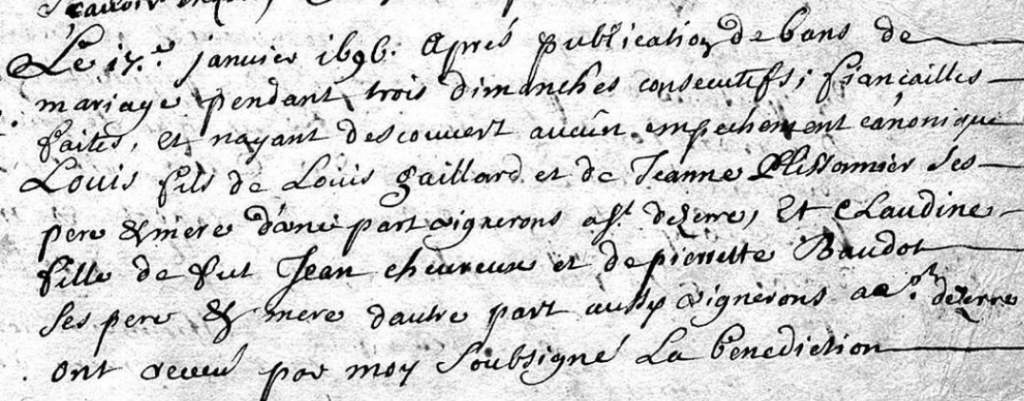 Le 17.e janvier 1696. Aprés publication de bans de
mariage pendant trois dimanches consecutifs, fiançailles
faites, et nayant descouvert aucun empechement canonique
Louis fils de Louis gaillard et de Jeanne Plissonnier ses
pere & mere d'une part vignerons a st. dezerre, Et Claudine
fille de fut Jean cheureux et de pierrette Baudot
ses pere & mere dautre part aussy vignerons a dezerre
ont receu par moy soubsigné La benediction